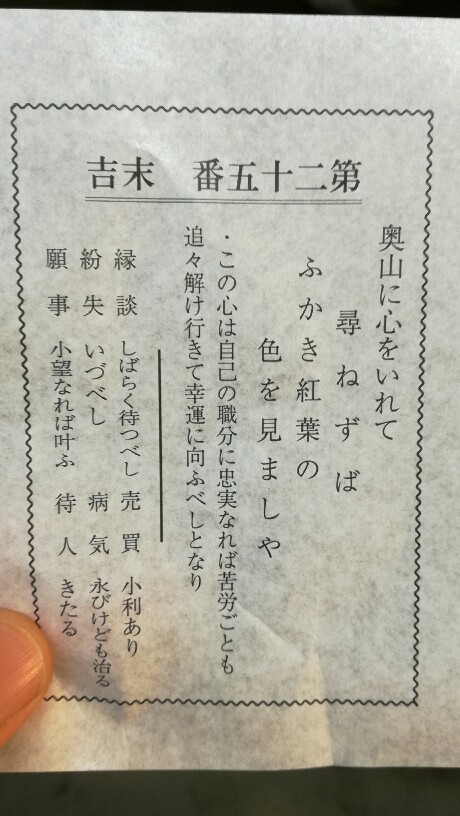 第二十五番　末吉
奥山に心をいれて
尋ねずば
ふかき紅葉の
色を見ましや
・この心は自己の職分に忠実なれば苦労ごとも
追々解け行きて幸運に向ふべしとなり
縁談　しばらく待つべし　売買　小利あり
紛失　いづべし　病気　永びけども治る
願事　小望なれば叶ふ　待人　きたる